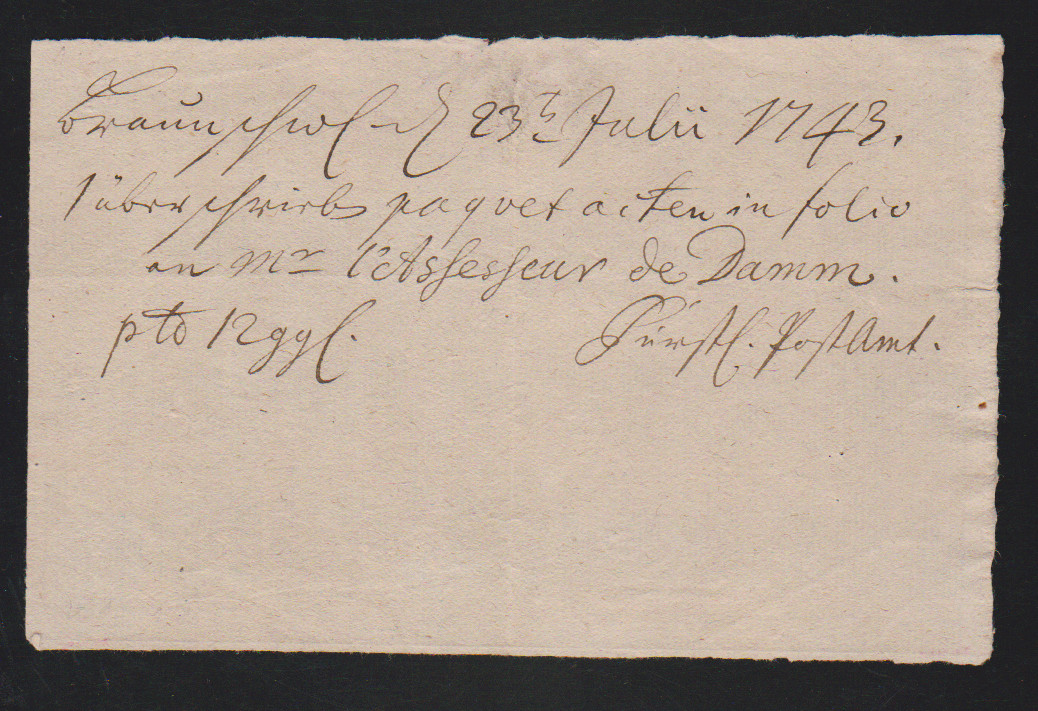 Braunschwl. d 23t Julii 1743.
1 überschriebs paquet acten in folio
an Mr l'Assesseur de Damm.
pto 12 ggl. Fürstl. PostAmt.